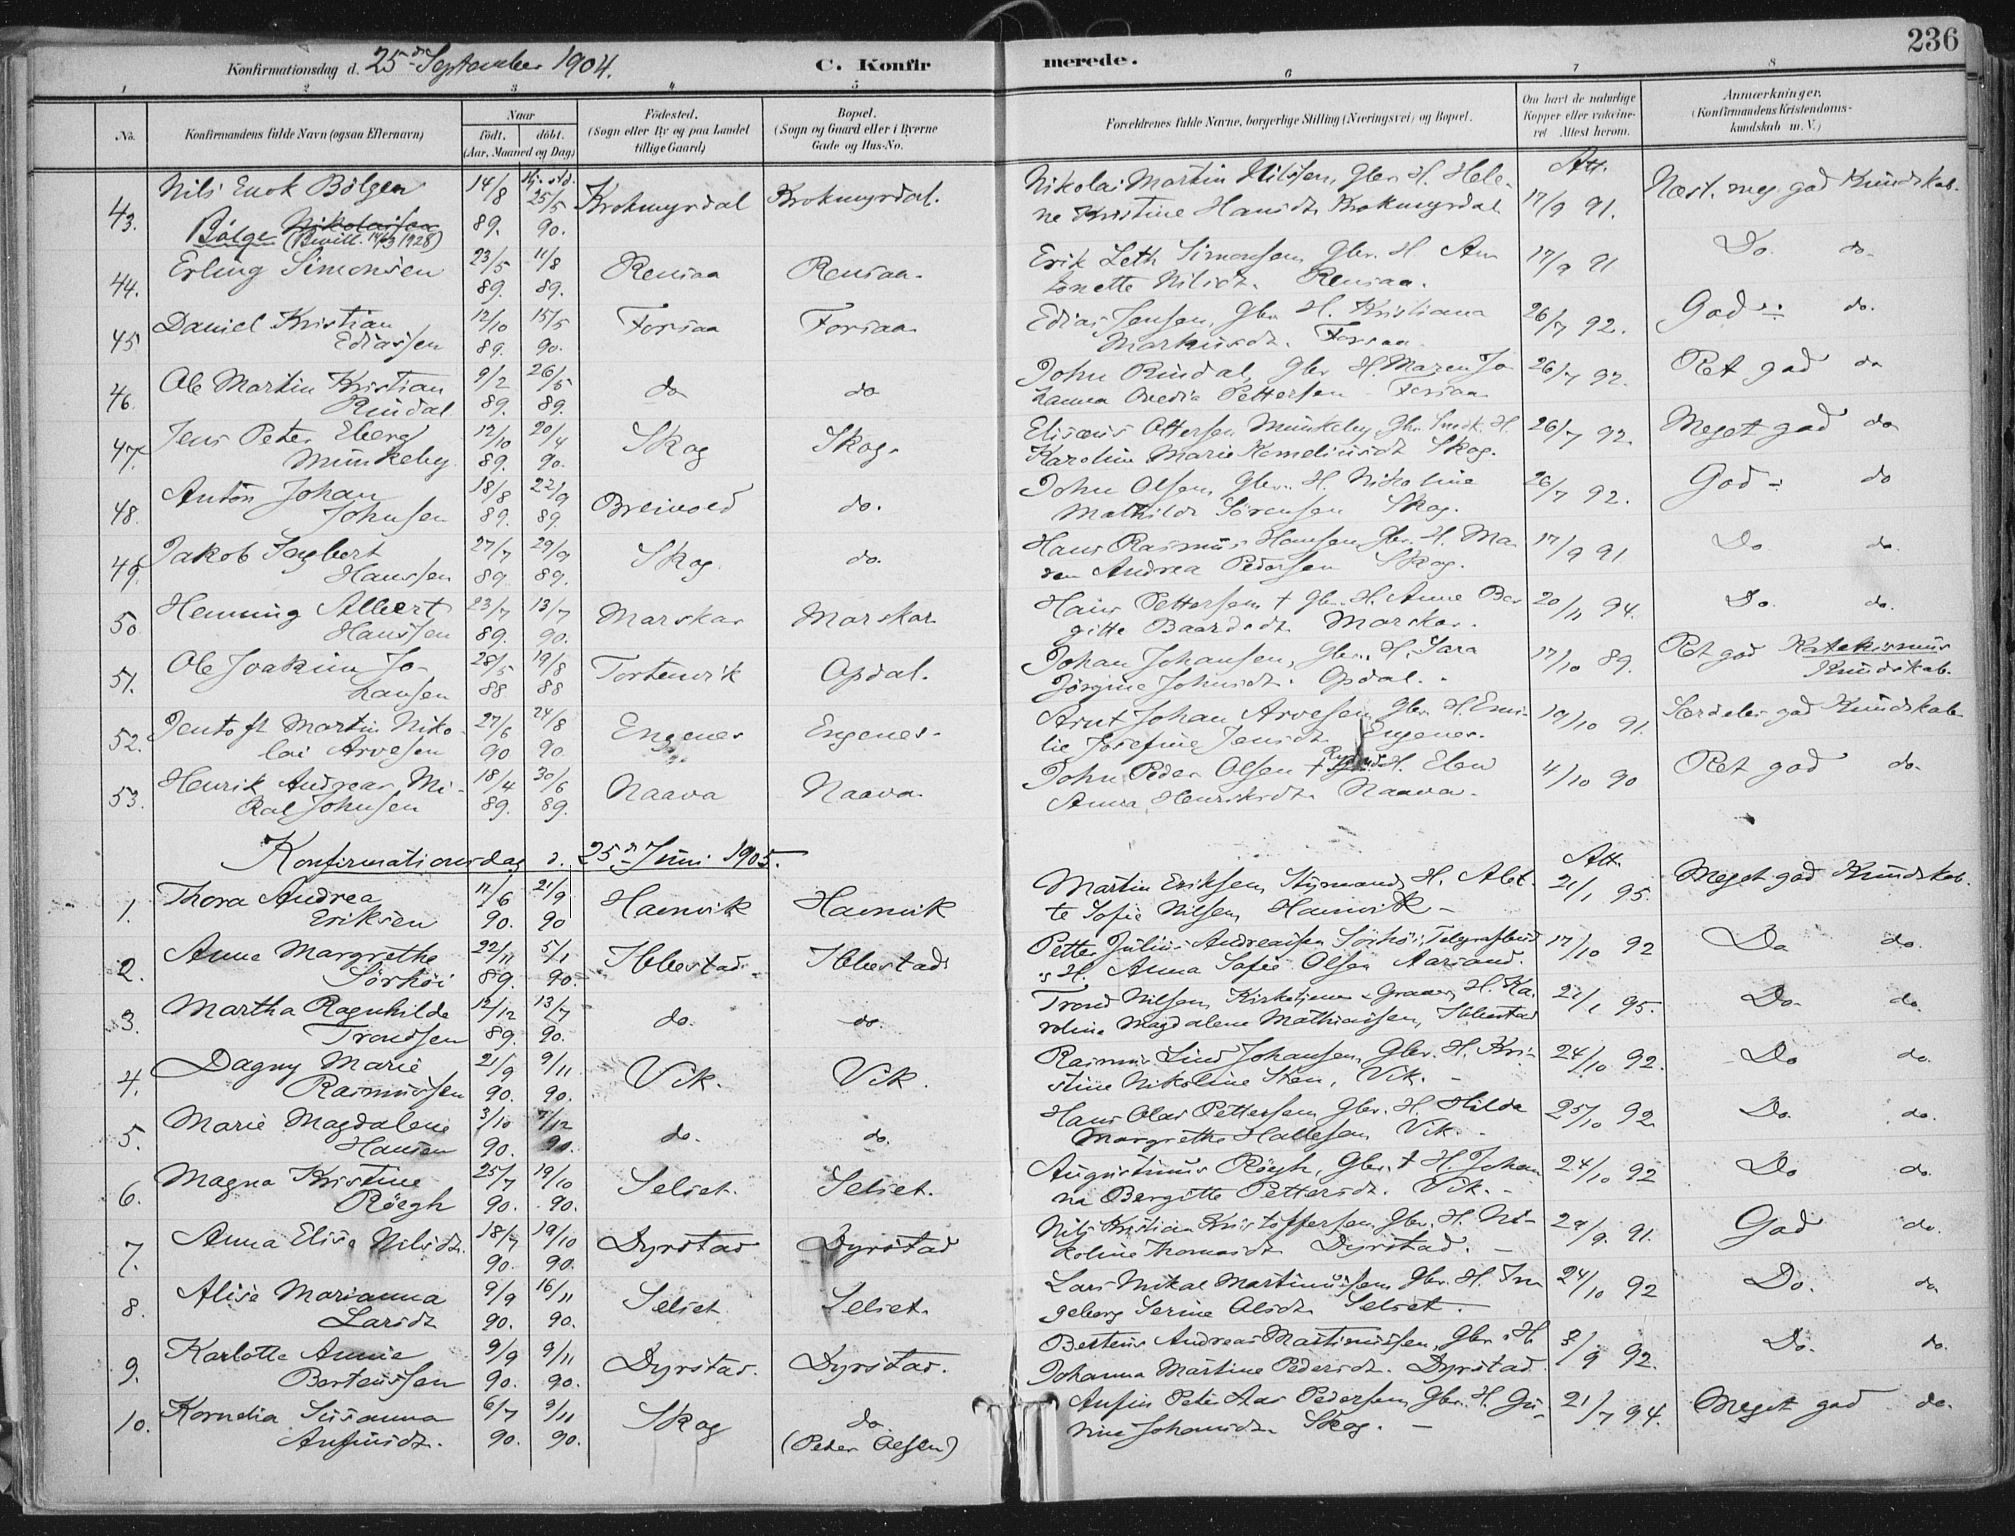 236
Konfirmationsdag d. 25de September 1904. C. Konfirmerede.
1 2 3 4 5 6 7 8
No. Konfirmandens fulde Navn (ogsaa Efternavn) Naar født. døbt. (Aar, Maaned og Dag) Fødested. (Sogn eller By og paa Landet tillige Gaard) Bopæl. (Sogn og Gaard eller i Byerne Gade og Hus-No. Forældrenes fulde Navne, borgerlige Stilling (Næringsvei) og Bopæl. Om havt de naturlige Kopper eller vakcineret Attest herom. Anmærkninger. (Konfirmandens Kristendomskundskab m. V.)
Att.
43. Nils Enok Bølgen 14/8 25/5 Krokmyrdal Krokmyrdal. Nikolai Martin Nilssen, Gbr. H. Hele- 17/9 91. Næst. meg. god Kundskab.
Nikolaisen 89. 90. ne Kristine Hansdt. Krokmyrdal
Bølge (Bevill. 14/3 1928)
44. Erling Simonsen 23/5 11/8 Rensaa Rensaa. Erik Leth Simonsen, Gbr. H. An 17/9 91 Do. do.
89. 89. tonette Nilsdt. Rensaa.
45 Daniel Kristian 12/10 15/5 Forsaa Forsaa Edias Jensen, Gbr. H. Kristiana 26/7 92. God do.
Ediassen 89. 90. Markusdt. Forsaa.
46. Ole Martin Kristian 9/2 26/5 do do John Rindal, Gbr. H. Maren Jo 26/7 92. Ret god do
Rindal 89. 89. hanna Ovedia Pettersen Forsaa
47. Jens Peter Eberg 12/10 20/4 Skog Skog. Elisæus Ottersen Munkeby, Gbr. Smed. H. 26/7 92. Meget god do
Munkeby. 89. 90. Karoline Marie Korneliusdt Skog.
48. Anton Johan 18/8 22/9 Breivold do. John Olsen, Gbr. H. Nikoline 26/7 92. God do
Johnsen 89. 89. Mathilde Sørensen Skog.
49. Jakob Ingbert 27/7 29/9 Skog do. Hans Rasmus Hansen, Gbr. H. Ma 17/9 91 Do do.
Hanssen 89. 89. ren Andrea Pedersen Skog.
50. Henning Albert 23/7 13/7 Marskar Marskar Hans Pettersen † Gbr. H. Anne Ber 20/11 94. Do. do.
Hanssen 89. 90. gitte Baardsdt. Marskar.
51. Ole Joakim Jo- 28/5 19/8 Tortenvik Opdal. Johan Johansen, Gbr. H. Sara 17/10 89. Ret god Katekismus
hansen 88. 88 Jørgine Johnsdt. Opdal. Kundskab.
52. Jentoft Martin Niko- 27/6 24/8 Engenes Engenes. Arnt Johan Arvesen, Gbr. H. Emi- 19/10 91. Særdeles god Kundskab
lai Arvesen 90 90 lie Josefine Jensdt Engenes.
53. Henrik Andreas Mi- 18/4 30/6 Naava Naava. John Peder Olsen † H. Elen 4/10 90 Ret god do.
kal Johnsen 89. 89. Anna Henriksdt. Naava.
Konfirmationsdag d. 25de Juni 1905.
Att.
1. Thora Andrea 17/6 21/9 Hamnvik Hamnvik Martin Eriksen, Styrmand, H. Alet- 21/1 95. Meget god Kundskab.
Eriksen 90. 90 te Sofie Nilsen, Hamnvik
2. Anna Margrethe 22/11 5/1 Ibbestad. Ibbestad Petter Julius Andreassen Sørhøi, Telegrafbud 17/10 92 Do do.
Sørhøi 89. 90. H. Anna Sofie Olsen Aarsand.
3. Martha Ragnhilde 12/12 13/7 do. do. Trond Nilsen, Kirketjener & Graver, H. Ka- 21/1 95. Do do
Trondsen 89. 90. roline Magdalene Mathiassen, Ibbestad
4. Dagny Marie 21/9 9/11 Vik. Vik. Rasmus Lind Johansen, Gbr. H. Kri- 24/10 92. Do do.
Rasmussen 90. 90. stine Nikoline Sten, Vik.
5. Marie Magdalene 3/10 7/12 do. do. Hans Olas Pettersen, Gbr. H. Hilda 25/10 92 Do. do.
Hansen 90. 90. Margrethe Hallesen, Vik.
6. Magna Kristine 25/7 19/10 Selset. Selset. Augustinus Røegh, Gbr. † H. Johan 24/10 92 Do do.
Røegh 90. 90. na Bergitte Pettersdt. Vik.
7. Anna Elise Nilsdt. 18/7 19/10 Dyrstad Dyrstad Nils Kristian Kristoffersen, Gbr. H. Ni- 29/9. 91. God do.
90. 90. koline Thomasdt Dyrstad.
8. Alise Marianna 9/9 16/11 Selset Selset. Lars Mikal Martinussen, Gbr. H. In 24/10 92 Do. do
Larsdt 90. 90. geborg Serine Olsdt. Selset.
9. Karlotte Annie 9/9 9/11 Dyrstad. Dyrstad. Berteus Andreas Martinussen, Gbr. H. 3/9 92. Do. do.
Berteussen 90. 90. Johanna Martine Pedersdt. Dyrstad
10. Kornelia Susanna 6/7 9/11 Skog do Anfin Peter Aas Pedersen, Gbr. H. Gu- 21/7 94. Meget god do.
Anfinsdt. 90. 90. (Peder Olsen) nine Johansdt. Skog.